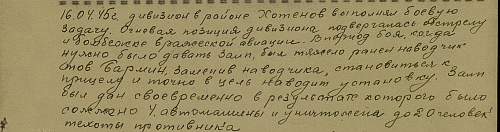 16.04.45г. дивизион в районе Хотенов выполнял боевую
задачу. Огневая позиция дивизиона подвергалась обстрелу
и бомбежке вражеской авиации. В период боя, когда
нужно было давать залп, был тяжело ранен наводчик
тов Бармин, заменив наводчика, становиться к
прицелу и точно в цель наводит установку. Залп
был дан своевременно в результате которого было
сожжено 4 автомашины и уничтожено до 20 человек
пехоты противника.